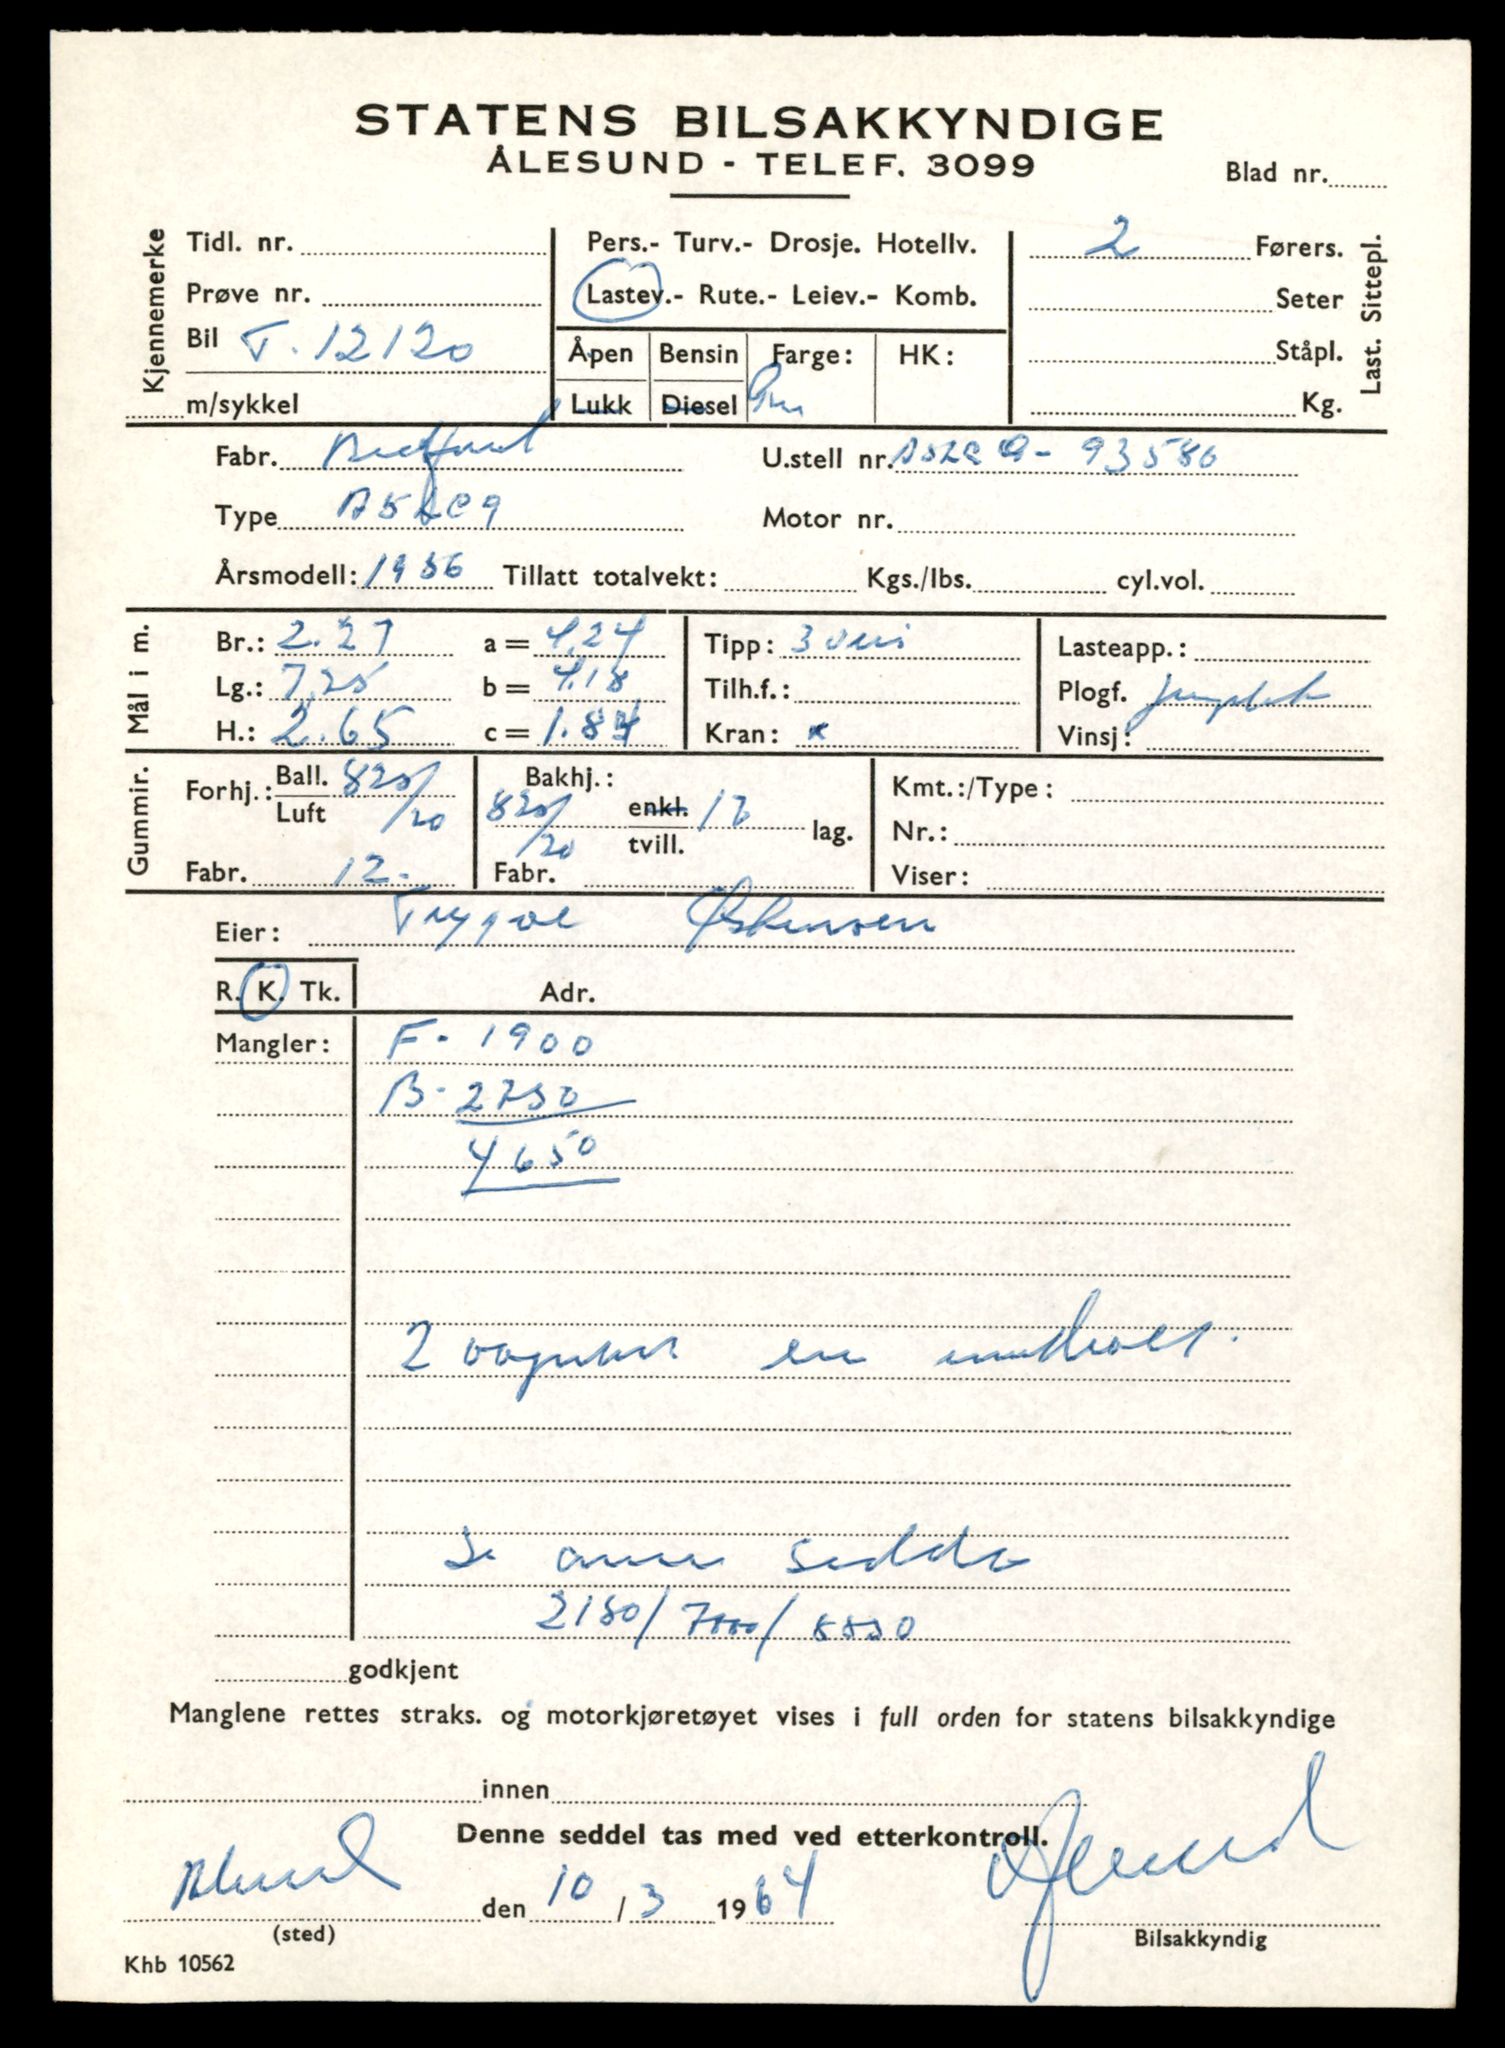 STATENS BILSAKKYNDIGE
ÅLESUND - TELEF. 3099
Blad nr.
Kjennemerke
Tidl. nr.
Prøve nr.
Bil T. 12120
m/sykkel
Pers.- Turv.- Drosje. Hotellv.
Lastev.- Rute.- Leiev.- Komb.
Åpen Bensin Farge: HK:
Lukk Diesel
2 Førers.
Seter
Ståpl.
Kg.
Last. Sittepl.
Fabr. Bedford U.stell nr. A5LC9 - 93580
Type A5LC9 Motor nr.
Årsmodell: 1956 Tillatt totalvekt: Kgs./lbs. cyl.vol.
Mål i m.
Br.: 2.27 a = 4,24 Tipp: 3 veis Lasteapp.:
Lg.: 7,25 b = 4,18 Tilh.f.: Plogf.
H.: 2.65 c = 1.84 Kran: x Vinsj:
Gummir.
Forhj.: Ball. 825/20 Bakhj.: Kmt.:/Type:
Luft 825/20 enkl. 12 lag. Nr.:
tvill.
Fabr. 12- Fabr. Viser:
Eier: Trygve
R. K. Tk. Adr.
Mangler: F - 1900
B - 2750
4650
2 en
Se annen seddel
2180/7000/
godkjent
Manglene rettes straks. og motorkjøretøyet vises i full orden for statens bilsakkyndige
innen
Denne seddel tas med ved etterkontroll.
Ålesund den 10/3 1964
(sted) Bilsakkyndig
Khb 10562